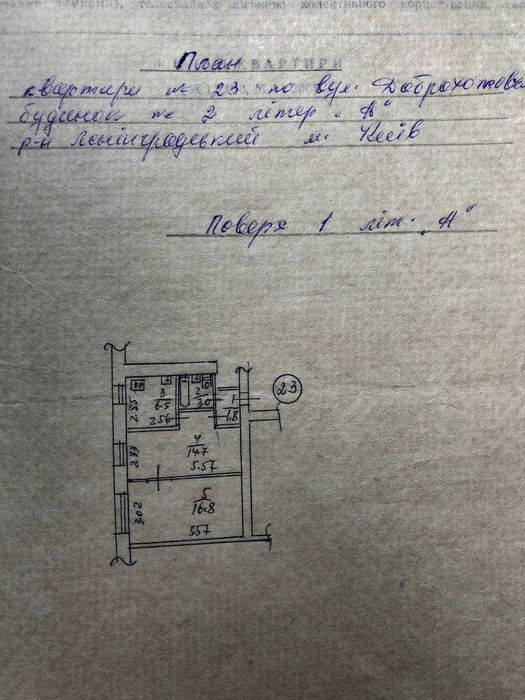 телевізійною антеною колективного користування,
КВАРТИРИ
План
квартири № 23 по вул. Доброхотова
будинок № 2 літер „А“
р-н Ленінградський м. Київ
Поверх 1 літ. „А“
23
3
6.5
2.56
2.55
2
3.0
1
1.8
4
14.7
5.57
2.77
5
16.8
5.57
3.02